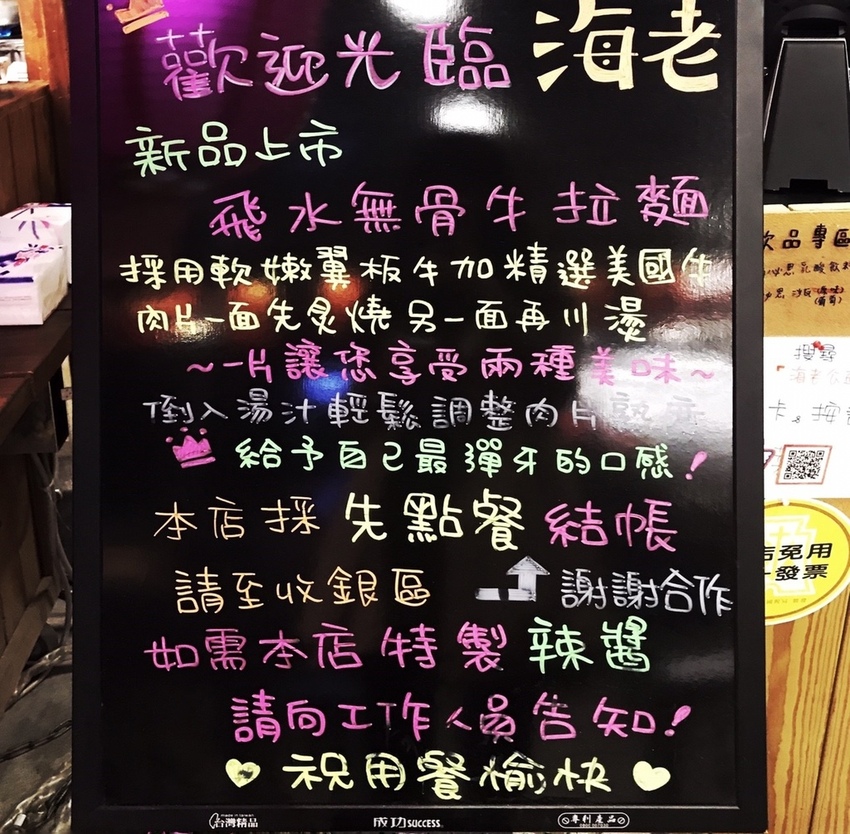 歡迎光臨 海老
新品上市
飛水無骨牛拉麵
採用軟嫩翼板牛加精選美國牛
肉片一面先炙燒另一面再川燙
～一片讓您享受兩種美味～
倒入湯汁輕鬆調整肉片熟度
給予自己最彈牙的口感！
本店採先點餐結帳
請至收銀區 謝謝合作
如需本店特製辣醬
請向工作人員告知！
祝用餐愉快
made in taiwan
台灣精品
成功 SUCCESS
專利產品
飲品專區
搜尋
海老
卡&按
店免用
發票